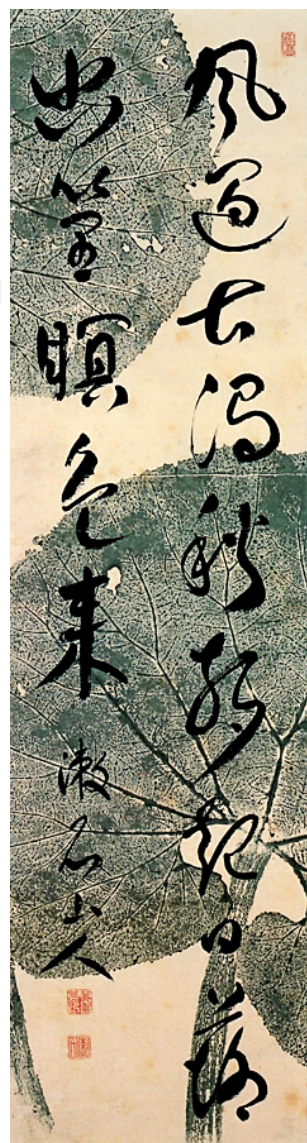 風過古澗秋聲起日落
幽篁瞑色来
漱石山人